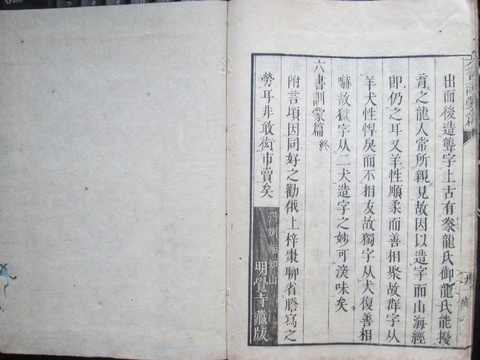 出而後造聾字上古有豢龍氏御龍氏能擾
育之龍人常所親見故因以造字而山海經
卽仍之耳又羊性順柔而善相聚故群字从
羊犬性悍戾而不相友故獨字从犬復善相
嚇故獄字从二犬造字之妙可深味矣
六書訓蒙篇 終
附言頃因同好之勸俄上梓棗聊省謄寫之
勞耳非敢衒市賣矣
明覺寺藏版